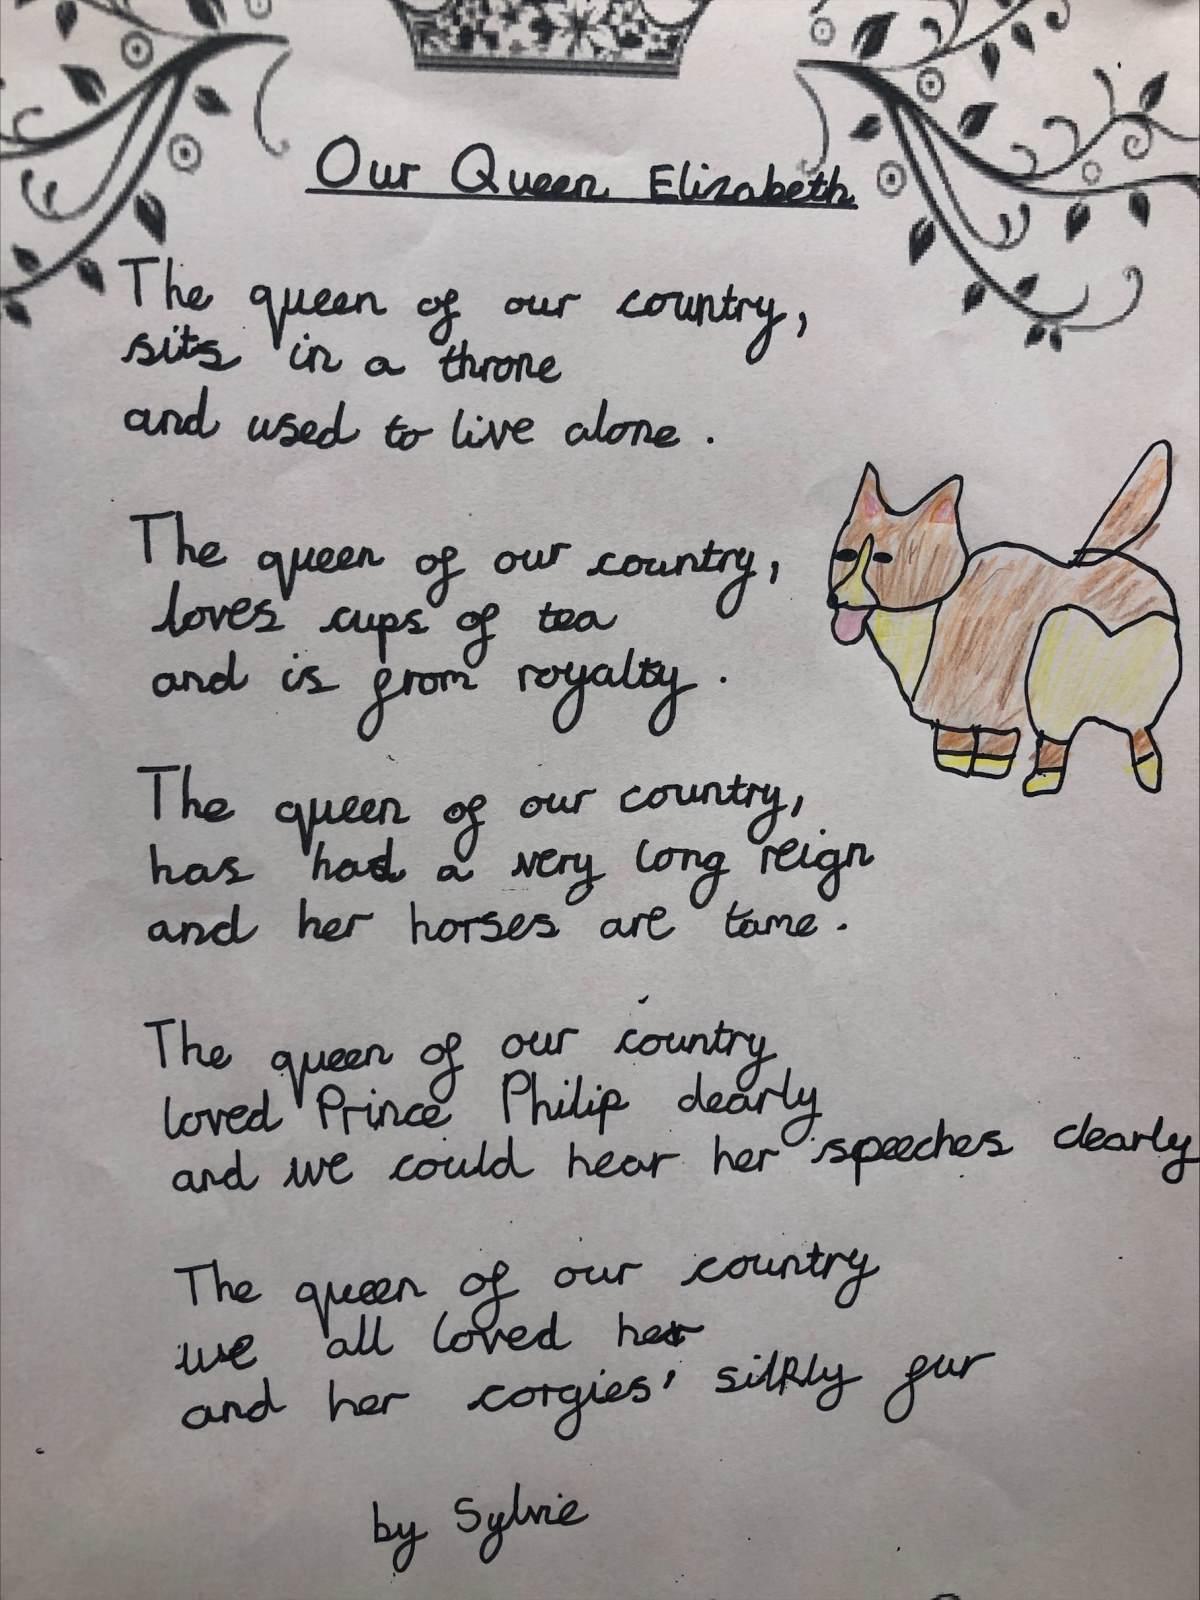 Our Queen Elizabeth
The queen of our country,
sits in a throne
and used to live alone.
The queen of our country,
loves cups of tea
and is from royalty.
The queen of our country,
has had a very long reign
and her horses are tame.
The queen of our country
loved Prince Philip dearly
and we could hear her speeches clearly
The queen of our country
we all loved her
and her corgies' silkly fur
by Sylvie